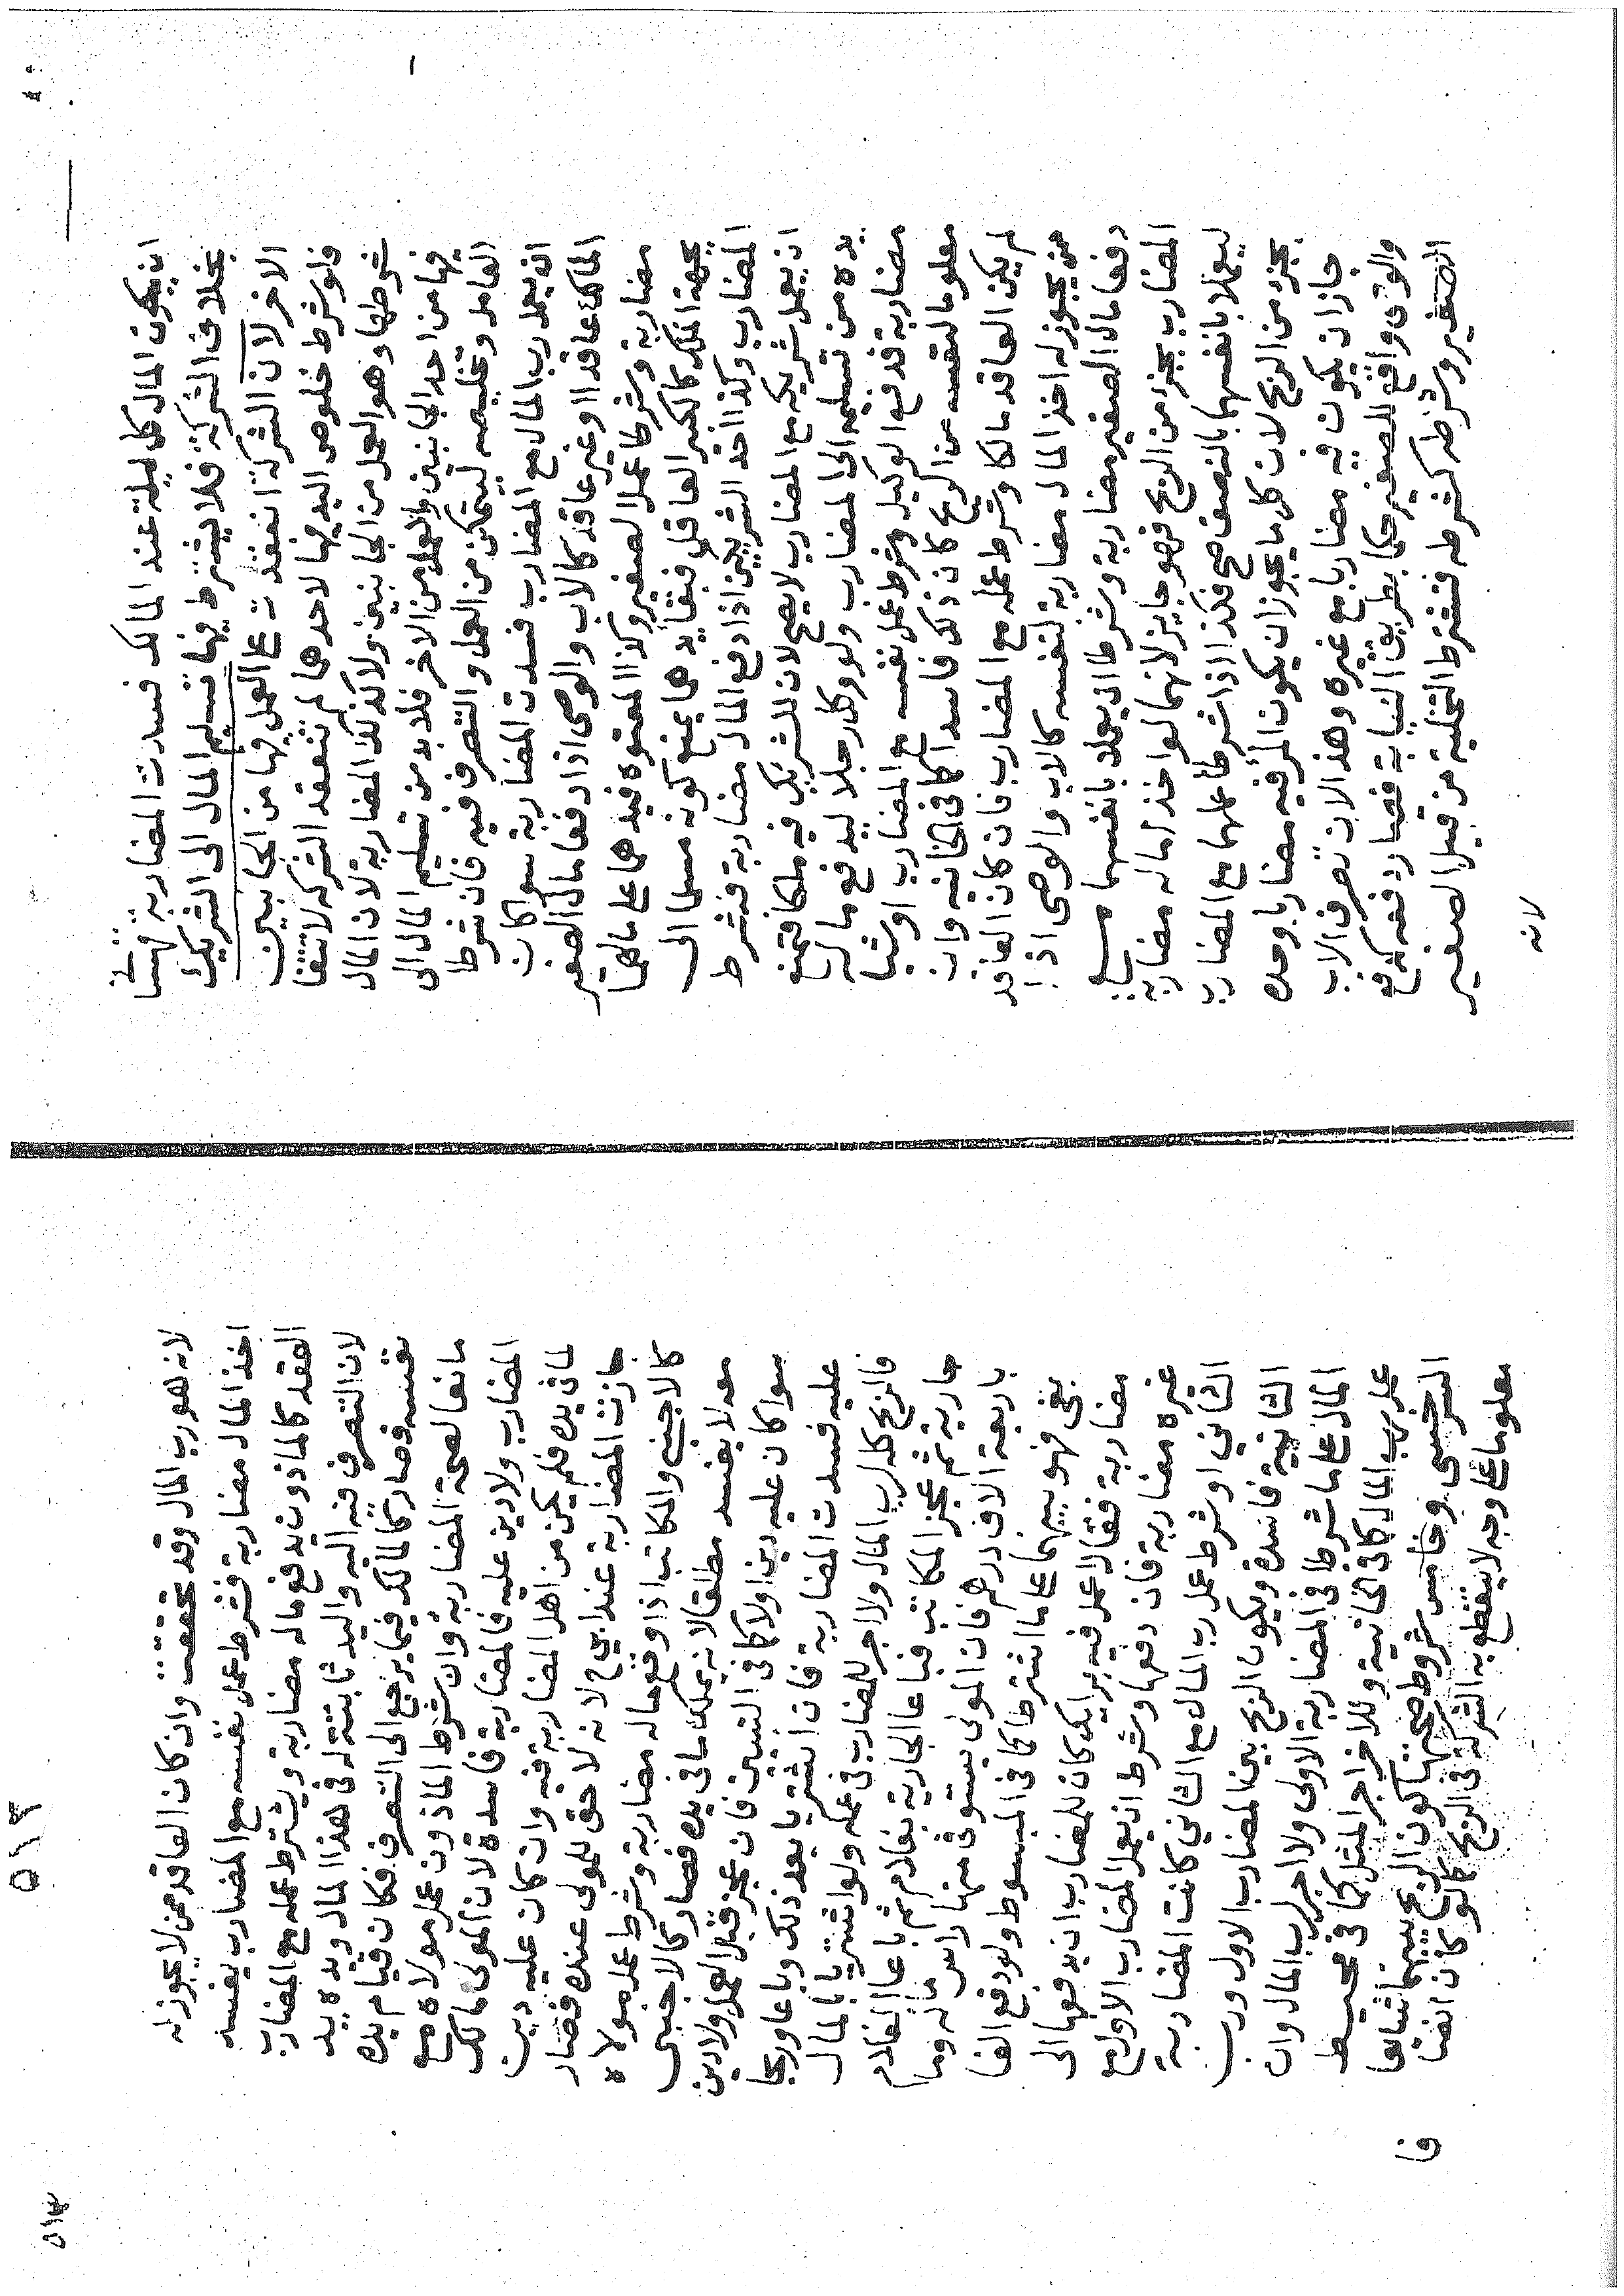 ان يكون المال كل ليلة عند المالك فسدت المضاربة
بخلاف الشركة فلا يشترط فيها تسليم المال الى الشريك
الاخر لان الشركة انعقدت على العمل فيها من الجانبين
فلو شرط خلوص اليد فيها لاحدهما لم تنعقد الشركة لانتفا
شرطها وهو العمل من الجانبين ولا كذلك المضاربة لان المال
فيها من احد الجانبين والعمل من الاخر فلا بد من تسليم المال الى
العامل وتخليصه ليتمكن من العمل والتصرف فيه فان شرط
ان يعمل رب المال مع المضارب فسدت المضاربة سوا كان
المالك عاقدا او غير عاقد كالاب والوصى اذا دفعا مال الصغير
مضاربة وشرطا عمل الصغير وكذا المعتوه فيدهما على مالهما
بجهة الملك كالكبير العاقل فبقا يدهما يمنع كونه مسلما الى
المضارب وكذا احد الشريكين اذا دفع المال مضاربة فشرط
ان يعمل شريكه مع المضارب لا يصح لان للشريك فيه ملكا فتمنع
يده من تسليمه الى المضارب ولو وكل رجلا ليدفع ماله
مضاربة فدفع الوكيل وشرط عمل نفسه مع المضارب وشيا
معلوما لنفسه من الربح كان ذلك فاسدا كما فى الخانية وان
لم يكن العاقد مالكا وشرط عمله مع المضارب فان كان العاقد
ممن يجوز له اخذ المال مضاربة لنفسه كالاب والوصى اذا
دفعا مال الصغير مضاربة وشرطا ان يعملا بانفسهما مع
المضارب بجزء من الربح فهو جايز لانهما لو اخذا ماله مضاربة
ليعملا بانفسهما بالنصف صح فكذا اذا شرطا عملهما مع المضارب
بجزء من الربح لان كل ما يجوز ان يكون المرء فيه مضاربا وحده
جاز ان يكون فيه مضاربا مع غيره وهذا لان تصرف الاب
والوصى واقع للصغير حكما بطريق النيابة فصار دفعه كدفع
الصغير وشرطه كشرطه فتشترط التخلية من قبل الصغير
لانه
٥١٢
لانه هو رب المال وقد تحققت وان كان العاقد ممن لا يجوز له
اخذ المال مضاربة فشرط عمل نفسه مع المضارب يفسد
العقد كالماذون يدفع ماله مضاربة ويشترط عمله مع المضارب
لان التصرف فيه اليه واليد ثابتة له فى هذا المال ويده يد
نفسه فصار كالمالك فيما يرجع الى التصرف فكان قيام يده
مانعا لصحة المضاربة وان شرط الماذون عمل مولاه مع
المضارب ولا دين عليه فالمضاربة فاسدة لان المولى مالك
لما فى يده فلم يكن من اهل المضاربة فيه وان كان عليه دين
جازت المضاربة عند ابي ح لانه لا حق للمولى عنده فصار
كالاجنبي والمكاتب اذا دفع ماله مضاربة وشرط عمل مولاه
معه لا يفسد مطلقا لانه يملك ما فى يده فصار كالاجنبي
سوا كان عليه دين او لا كما فى التبيين فان عجز قبل العمل ولا دين
عليه فسدت المضاربة فان اشتريا بعد ذلك وباعا وربحا
فالربح كله لرب المال ولا اجر للمضارب فى عمله ولو اشتريا بالمال
جارية ثم عجز المكاتب فباعا الجارية بغلام ثم باعا الغلام
باربعة الاف درهم فان المولى يستوفى منها راس ماله وما
بقى فهو بينهما على ما اشترطا كما فى المبسوط ولو دفع الفا
مضاربة فقال اعمل فيه برايك كان للمضارب ان يدفعها الى
غيره مضاربة فان دفعها وشرط ان يعمل المضارب الاول مع
الثاني او شرط عمل رب المال مع الثاني كانت المضاربة
الثانية فاسدة ويكون الربح بين المضارب الاول ورب
المال على ما شرطا فى المضاربة الاولى ولا اجر لرب المال وان
عمل رب المال كما فى الخانية وللاخر اجر المثل كما فى محيط
السرخسي وخامس شروط صحتها كون الربح بينهما شائعا
معلوما على وجه لا ينقطع به الشركة فى الربح كما لو كان انصا
فا